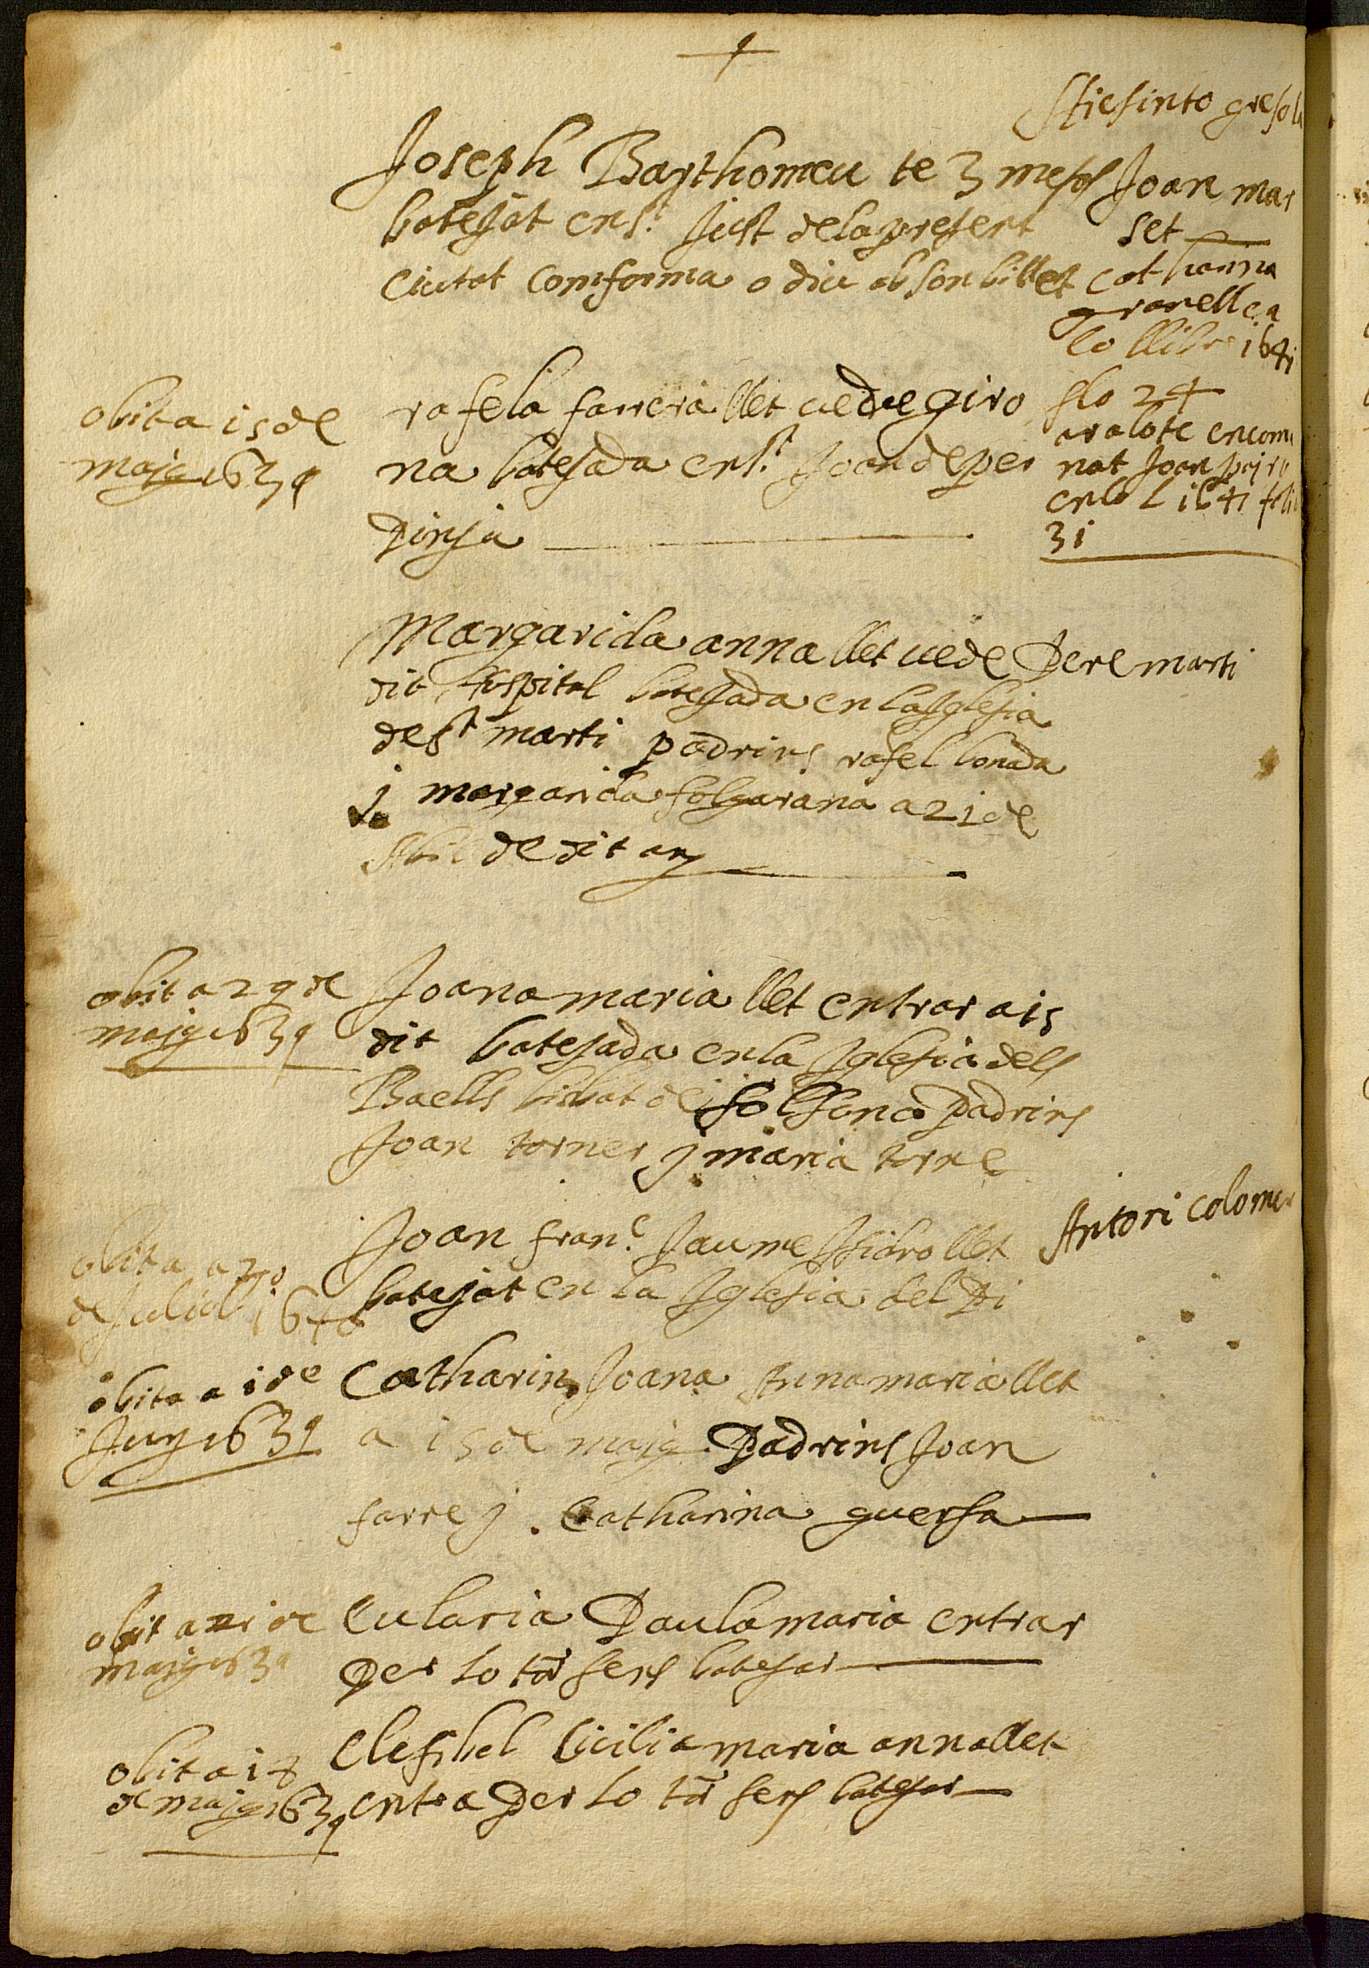 Joseph Barthomeu te 3 mesos
batejat en St Just de la present
Ciutat comforma o diu ab son billet
Joan mar
set
cathanna
granellca
Lo llibre 1641
flo 24
ara lo te encoma
nat Joan
en lo L 1641
31
obit a 15 de
maig 1639
rafela farrera llet ve de giro
na batejada en St Joan de per
Pinja
Margarida anna llet ve de Pere marti
dit hospital batejada en la Iglesia
de St marti padrins rafel bonada
j margarida folgarana a 21 de
Abil de dit any
obit a 29 de
maig 1639
Joana maria llet entrar a 15
dit batejada en la Iglesia dels
Baells bisbat de solsona padrins
Joan torner j maria torne
obit a 20
de Juliol 1640
Joan franc Jaume Isidro llet
batejat en la Iglesia del Pi
Antoni Colomer
obit a 1 de
Juny 1639
Catharin Joana Anna maria llet
a 15 de maig Padrins Joan
farre j Catharina guersa
obit a 21 de
maig 1639
Eularia Paula maria entrar
Per lo torn sens batejar
obit a 18
de maig 1639
Elesabel Cicilia maria anna llet
entra Per lo torn sens batejar